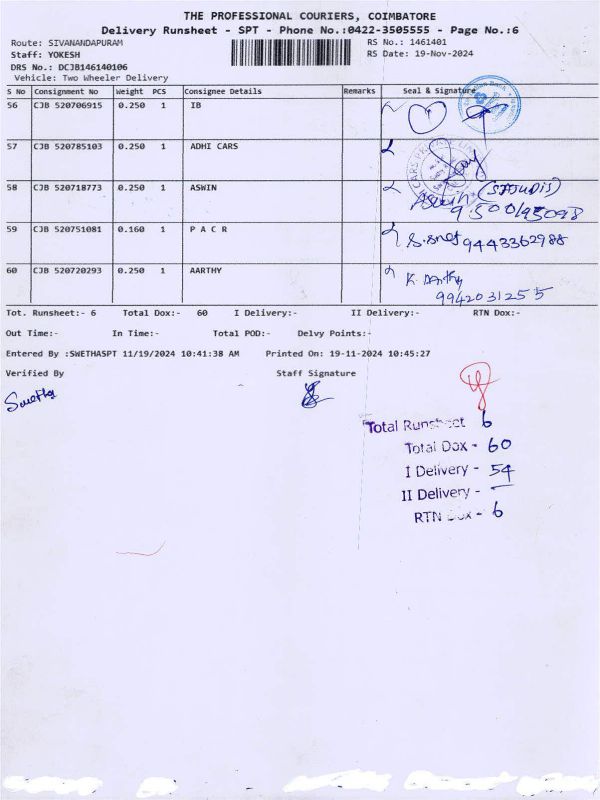 THE PROFESSIONAL COURIERS, COIMBATORE
Delivery Runsheet - SPT - Phone No.:0422-3505555 - Page No.:6
Route: SIVANANDAPURAM RS No.: 1461401
Staff: YOKESH RS Date: 19-Nov-2024
DRS No.: DCJB146140106
Vehicle: Two Wheeler Delivery
S No Consignment No Weight PCS Consignee Details Remarks Seal & Signature
56 CJB 520706915 0.250 1 IB
57 CJB 520785103 0.250 1 ADHI CARS
58 CJB 520718773 0.250 1 ASWIN Aswin
59 CJB 520751081 0.160 1 P A C R 9443362988
60 CJB 520720293 0.250 1 AARTHY
99420 31255
Tot. Runsheet:- 6 Total Dox:- 60 I Delivery:- II Delivery:- RTN Dox:-
Out Time:- In Time:- Total POD:- Delvy Points:-
Entered By :SWETHASPT 11/19/2024 10:41:38 AM Printed On: 19-11-2024 10:45:27
Verified By Staff Signature
Swetha
Total Runsheet 6
Total Dox - 60
I Delivery - 54
II Delivery - —
RTN Dox - 6